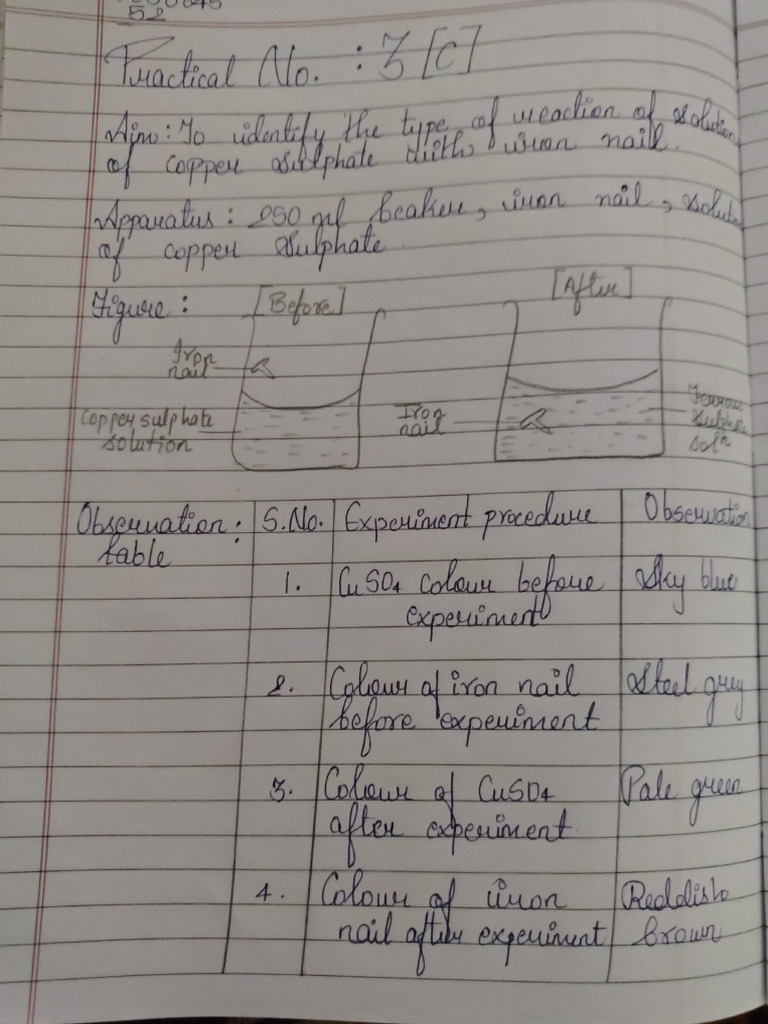 52
Practical No. : 3 [C]
Aim : To identify the type of reaction of solution
of copper sulphate with iron nail.
Apparatus : 250 ml beaker, iron nail, solut
of copper sulphate
Figure : [Before] [After]
Iron
nail
Copper sulphate
solution
Iron
nail
Ferrous
sulpha
solⁿ
Observation : S.No. Experiment procedure Observation
table
1. CuSO4 colour before Sky blue
experiment
2. Colour of iron nail Steel grey
before experiment
3. Colour of CuSO4 Pale green
after experiment
4. Colour of iron Reddish
nail after experiment brown